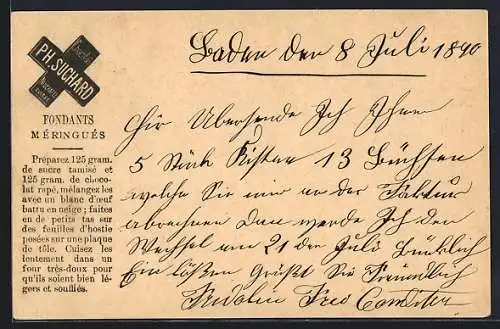 Chocolat
PH. SUCHARD
FONDANTS
MÉRINGUÉS
Préparez 125 gram.
de sucre tamisé et
125 gram. de choco-
lat rapé, mélangez les
avec un blanc d'œuf
battu en neige; faites
en de petits tas sur
des feuilles d'hostie
posées sur une plaque
de tôle. Cuisez les
lentement dans un
four très-doux pour
qu'ils soient bien lé-
gers et soufflés.
Baden den 8 Juli 1890
Hir Übersende Ich Ihnen
5 Stück Kisten 13 Büchsen
welche Sie mir an der Faktur
abrechnen Dan werde Ich den
Wechsel am 21 der Juli
Ein Grüßt Sie Freundlich
Fridolin Frei